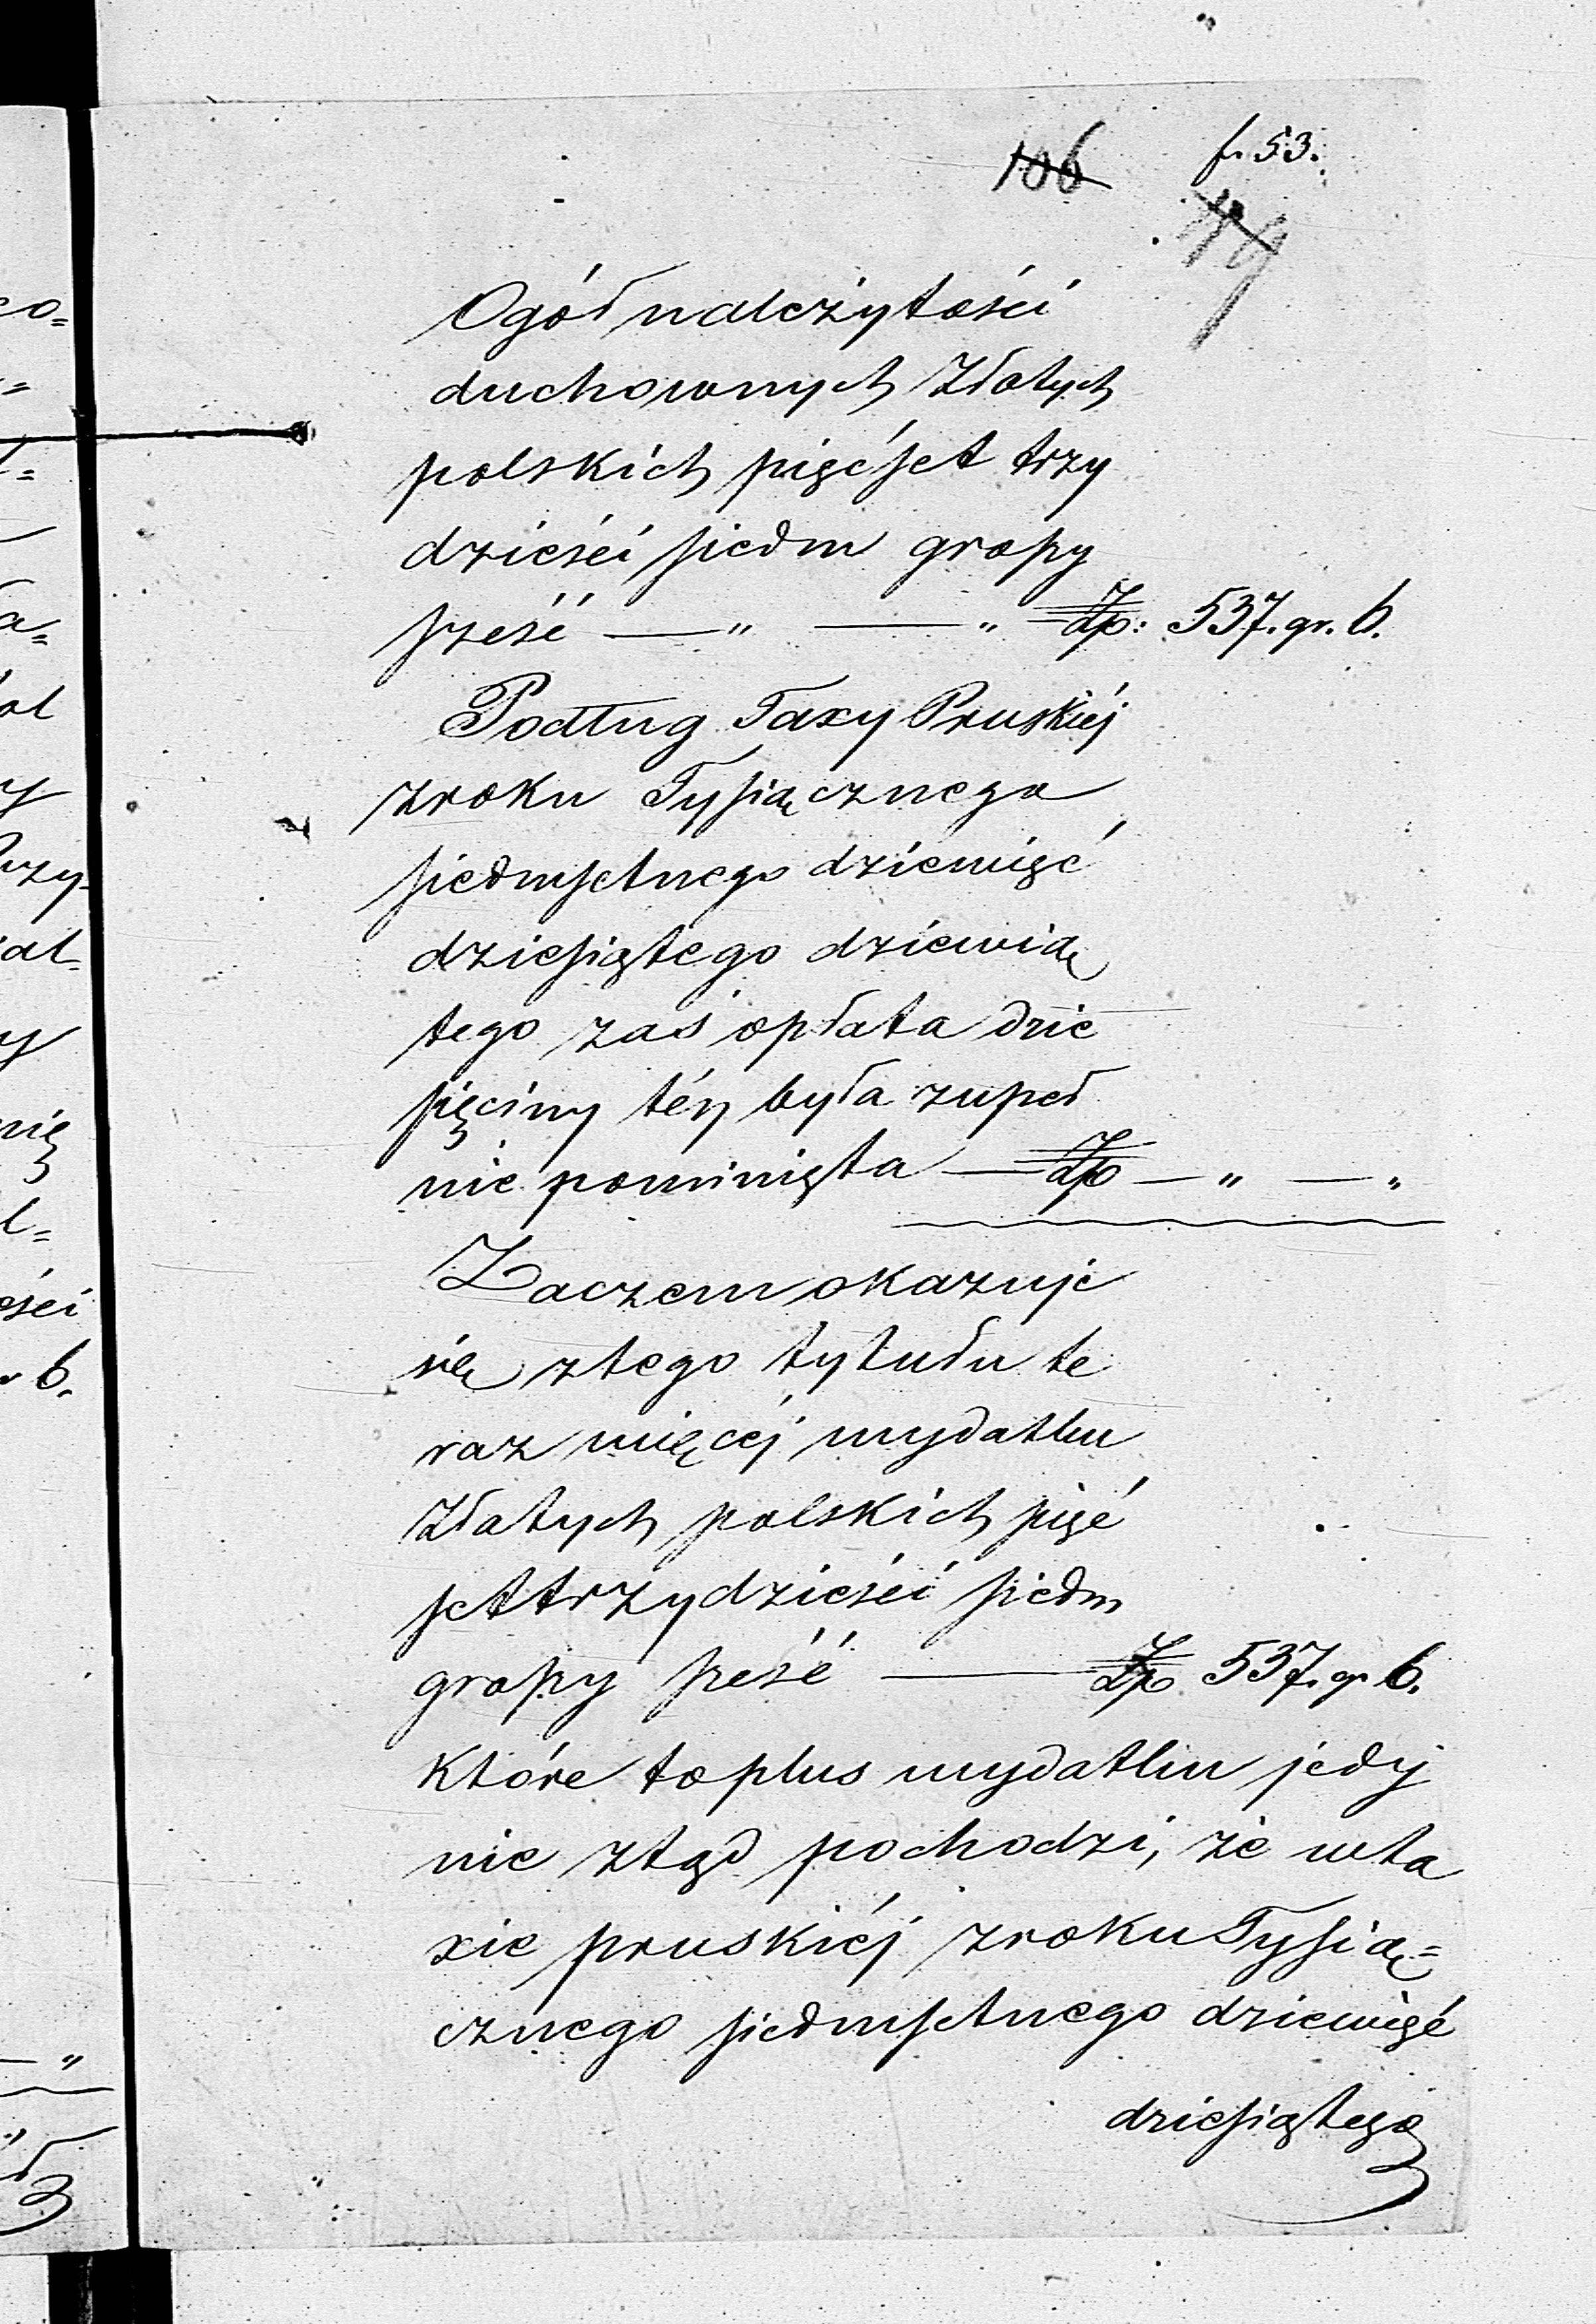 106
f. 53.
Ogół należytości
duchownych Złotych
polskich pięćset trzy
dzieści siedm groszy
sześć — " — " Zp: 537. gr. 6.
Podług Taxy Pruskiéj
zroku Tysiącznego
siedmsetnego dziewięć
dziesiątego dziewią
tego zaś opłata dzie
sięciny téy była zupeł
nie pominięta — Zp — " — "
Zaczem okazuje
się ztego tytułu te
raz więcéj wydatku
Złotych polskich pięć
set trzydzieści siedm
groszy sześć — Zp 537. gr 6.
które to plus wydatku jedy
nie ztąd pochodzi, że wta
xie pruskiéj zroku Tysią=
cznego siedmsetnego dziewięć
dziesiątego